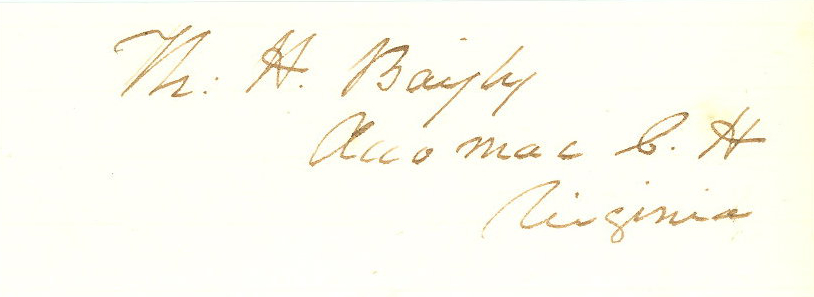 Th: H. Bayly
Accomac C. H
Virginia